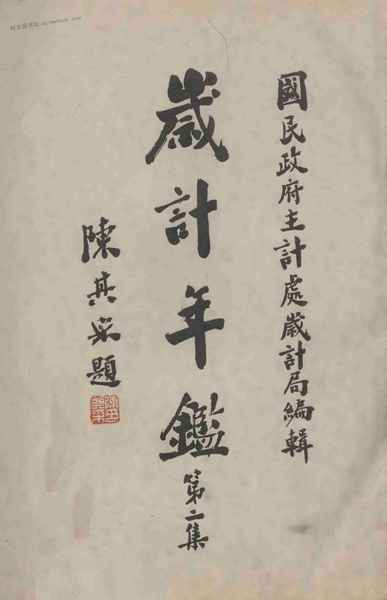 國民政府主計處歲計局編輯
歲計年鑑
第二集
陳其采題